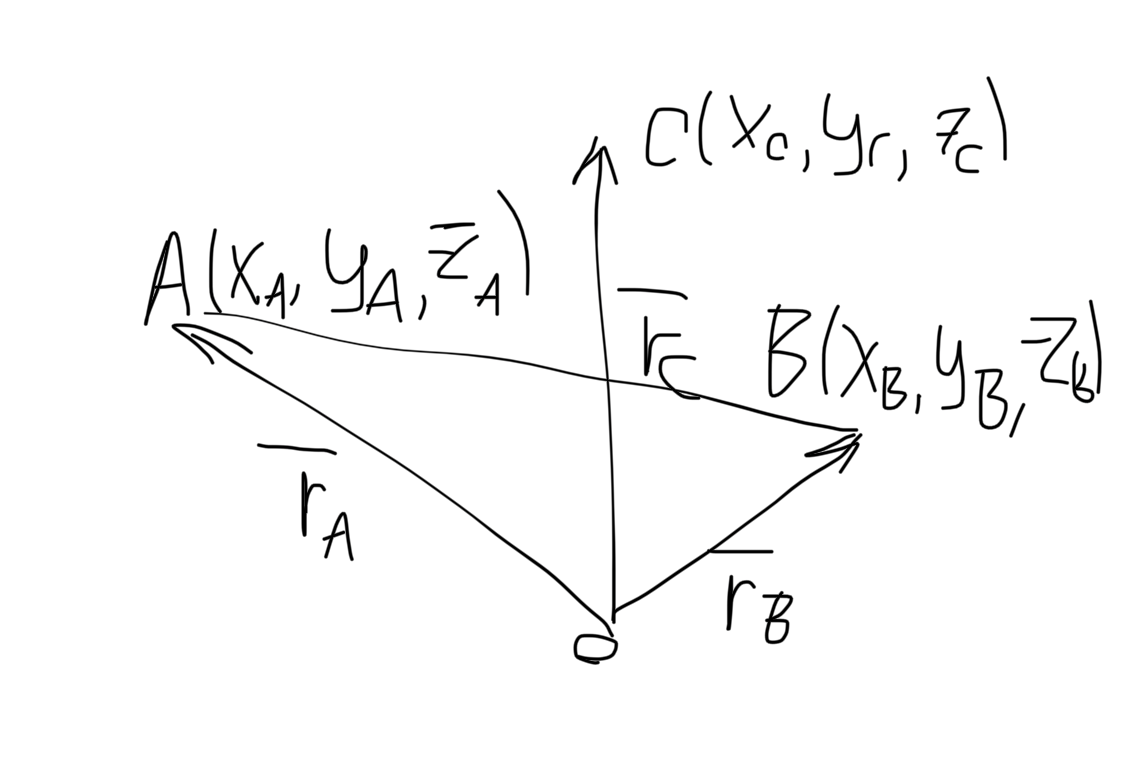 C(x_C, y_C, z_C)
A(x_A, y_A, z_A)
r̅_C
B(x_B, y_B, z_B)
r̅_A
r̅_B
O